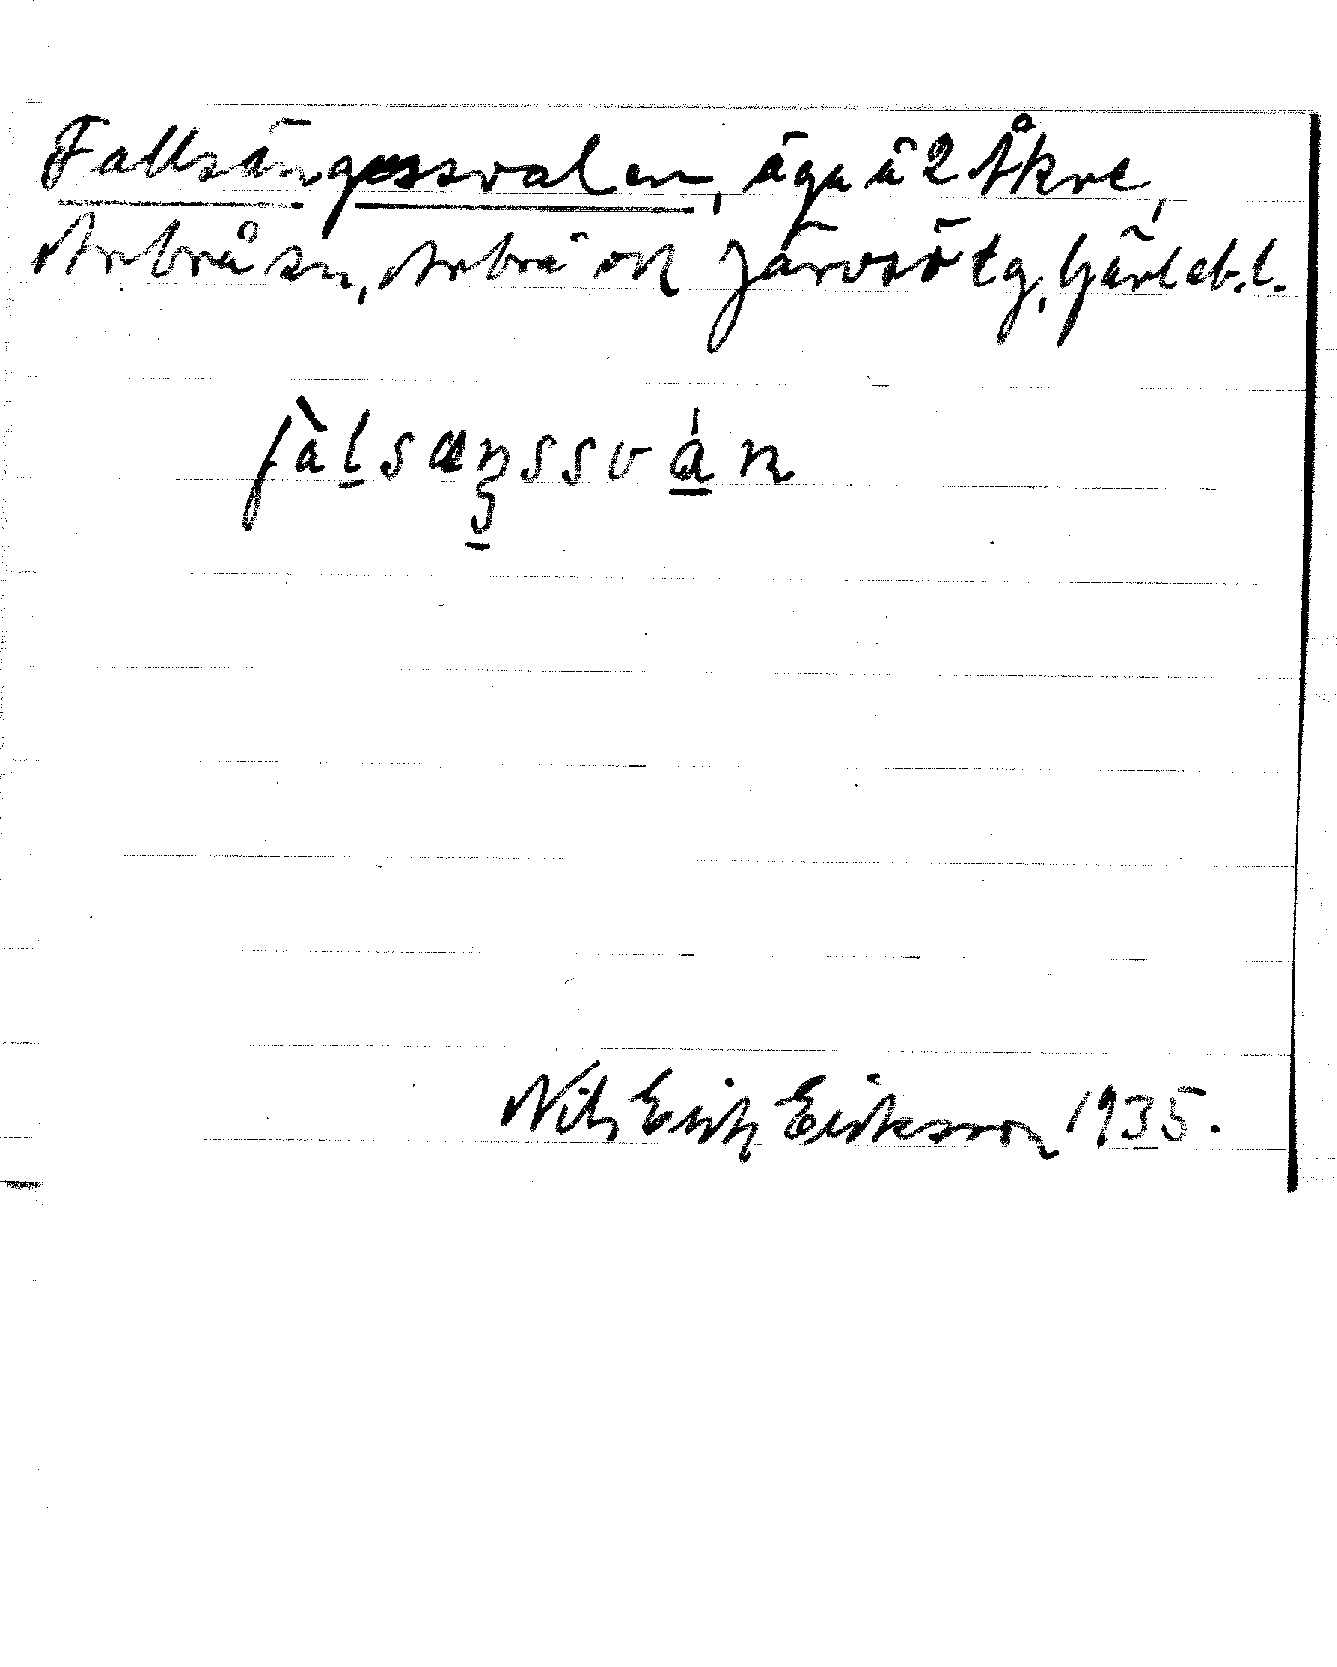 Fallsängessvalen, ägu å 2 Åkre,
Arbrå sn, Arbrå och Järvsö tg, Gävleb. l.
fàlsæŋssván
Nils Erik Eriksson 1935.